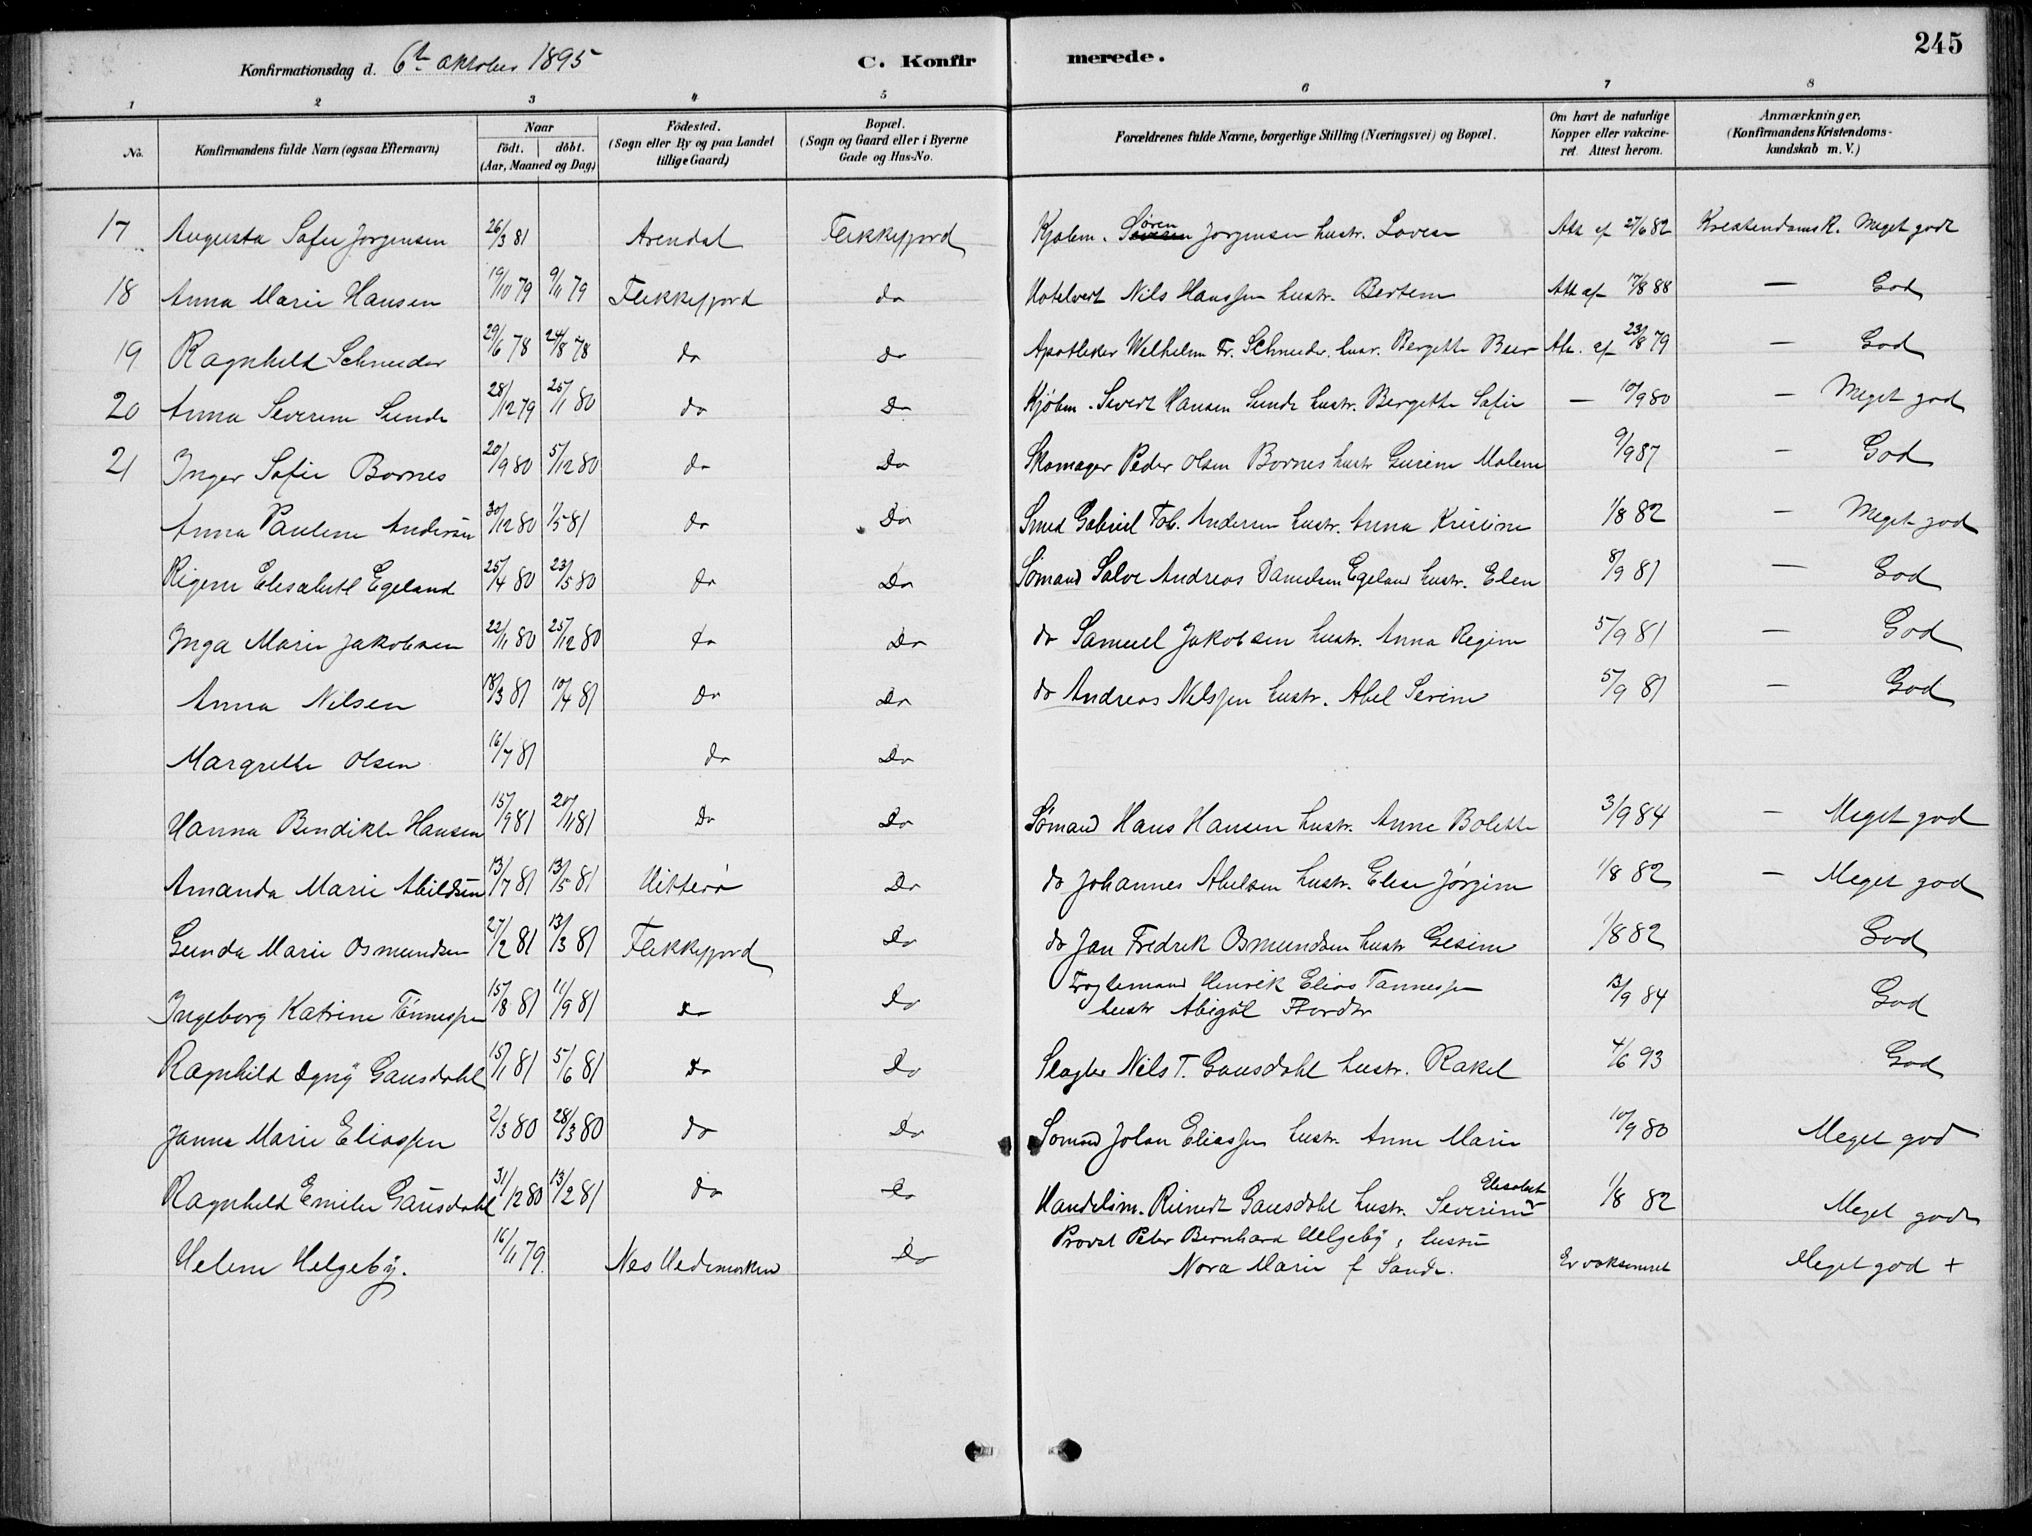 245
Konfirmationsdag d. 6te Oktober 1895 C. Konfirmerede.
1 2 3 4 5 6 7 8
No. Konfirmandens fulde Navn (ogsaa Efternavn) Naar født. døbt. (Aar, Maaned og Dag) Fødested. (Sogn eller By og paa Landet tillige Gaard) Bopæl. (Sogn og Gaard eller i Byerne Gade og Hus-No. Forældrenes fulde Navne, borgerlige Stilling (Næringsvei) og Bopæl. Om havt de naturlige Kopper eller vakcineret. Attest herom. Anmærkninger. (Konfirmandens Kristendomskundskab m. V.)
17 Augusta Sofie Jorgensen 26/3 81 Arendal Flekkefjord Kjøbm. Søren Jorgensen hustr. Lovise Att af 27/6 82 Kristendomsk. Meget godt
18 Anna Marie Hansen 19/10 79 9/11 79 Flekkefjord do Hotelvert Nils Hanssen hustr. Bertine Att af 17/8 88 — God
19 Ragnhild Schneider 29/6 78 24/8 78 do do Apotheker Wilhelm Fr. Schneider hustr. Bergitte Beer Att. af 23/8 79 — God
20 Anna Severine Sunde 28/12 79 25/1 80 do Do Kjøbm. Sivert Hansen Sunde hustr. Bergitte Sofie — 10/9 80 — Meget god
21 Inger Sofie Bornes 20/9 80 5/12 80 do Do Skomager Peder Olsen Bornes hustr Gurine Maline 9/9 87 — God
Anna Pauline Andersen 30/12 80 1/5 81 do Do Smed Gabriel Tob. Andersen hustr. Anna Kristine 1/8 82 — Meget god
Rigine Elisabeth Egeland 25/4 80 23/5 80 do Do Sømand Salve Andreas Danielsen Egeland hustr. Elen 8/9 81 — God
Inga Marie Jakobsen 22/11 80 25/12 80 do Do do Samuel Jakobsen hustr. Anna Regine 5/9 81 — God
Anna Nilsen 18/3 81 10/4 81 do Do do Andreas Nilssen hustr. Abel Serine 5/9 81 — God
Margrethe Olsen 16/7 81 do Do
Hanna Bendikte Hansen 15/9 81 20/11 81 Do Do Sømand Hans Hansen hustr. Anne Bolette 3/9 84 — Meget god
Amanda Marie Abildsen 13/7 81 13/5 81 Hitterø Do do Johannes Abelsen hustr. Elise Jørgine 1/8 82 — Meget god
Gunda Marie Osmundsen 27/2 81 13/3 81 Flekkefjord Do do Jan Fredrik Osmundsen hustr Gesine 1/8 82 God
Ingeborg Katrine Tønnessen 15/8 81 11/9 81 do Do Henrik Elias Tønnessen
hustr Abigal 13/9 84 God
Ragnhild Dyny Gausdahl 15/1 81 5/6 81 Do Do Slagter Nils T. Gausdahl hustr. Rakel 4/6 93 God
Janna Marie Eliassen 2/3 80 28/3 80 do Do Sømand Johan Eliassen hustr. Anne Marie 10/9 80 Meget god
Ragnhild Emilie Gausdahl 31/12 80 13/2 81 do Do Handelsm. Reinert Gausdahl hustr. Severine Elisabet 1/8 82 Meget god
Helene Helgeby. 16/11 79. Nes Hedemarken Do Provst Peter Bernhard Helgeby, hustru
Nora Marie f Sande. Er vaksineret Meget god +